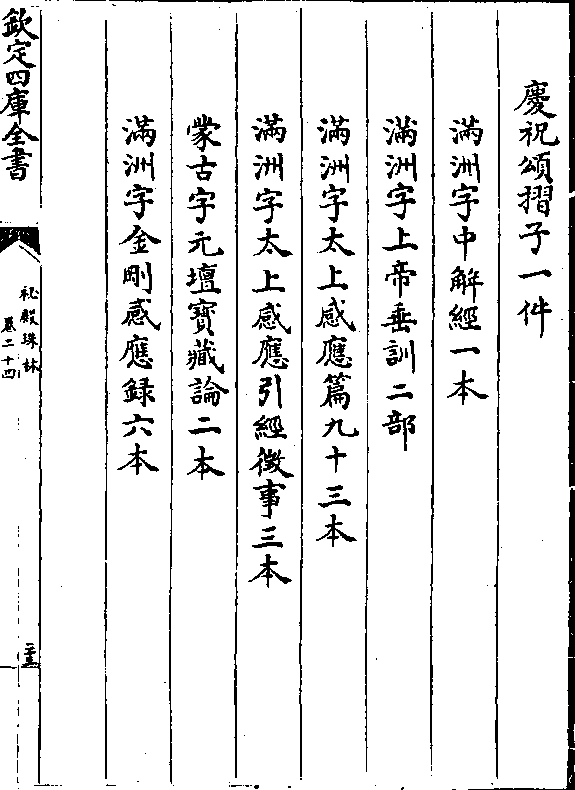 慶祝頌摺子一件
滿洲字中解經一本
滿洲字上帝垂訓二部
滿洲字太上感應篇九十三本
滿洲字太上感應引經徵事三本
蒙古字元壇寶藏論二本
滿洲字金剛感應録六本
欽定四庫全書
祕殿珠林
卷二十四